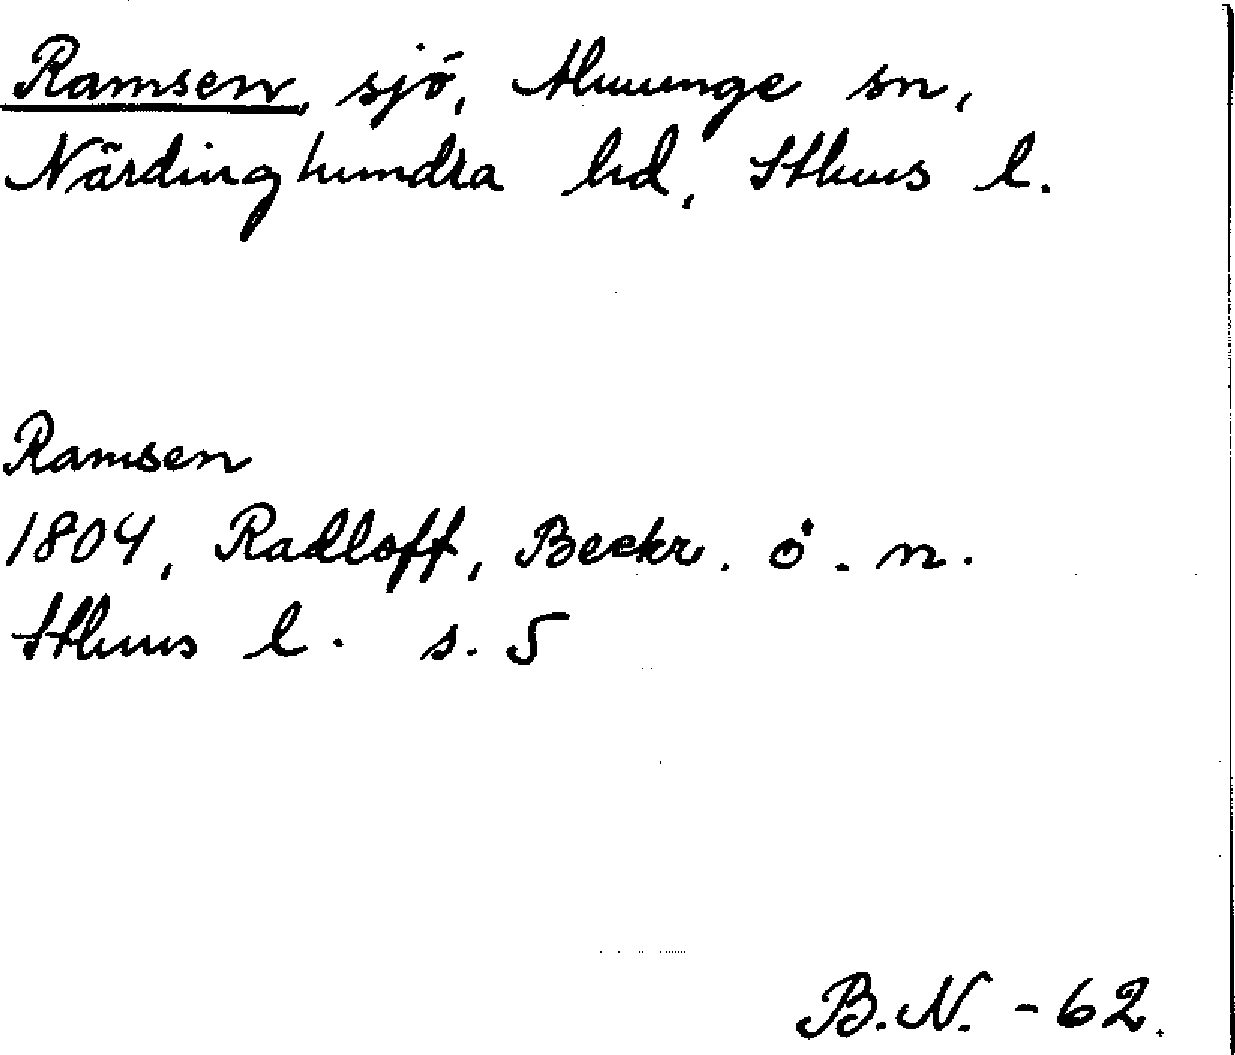 Ramsen, sjö, Almunge sn,
Närdinghundra hd, Sthms l.
Ramsen
1804, Radloff, Beskr. ö. n.
Sthms l. s. 5
B.N. -62.